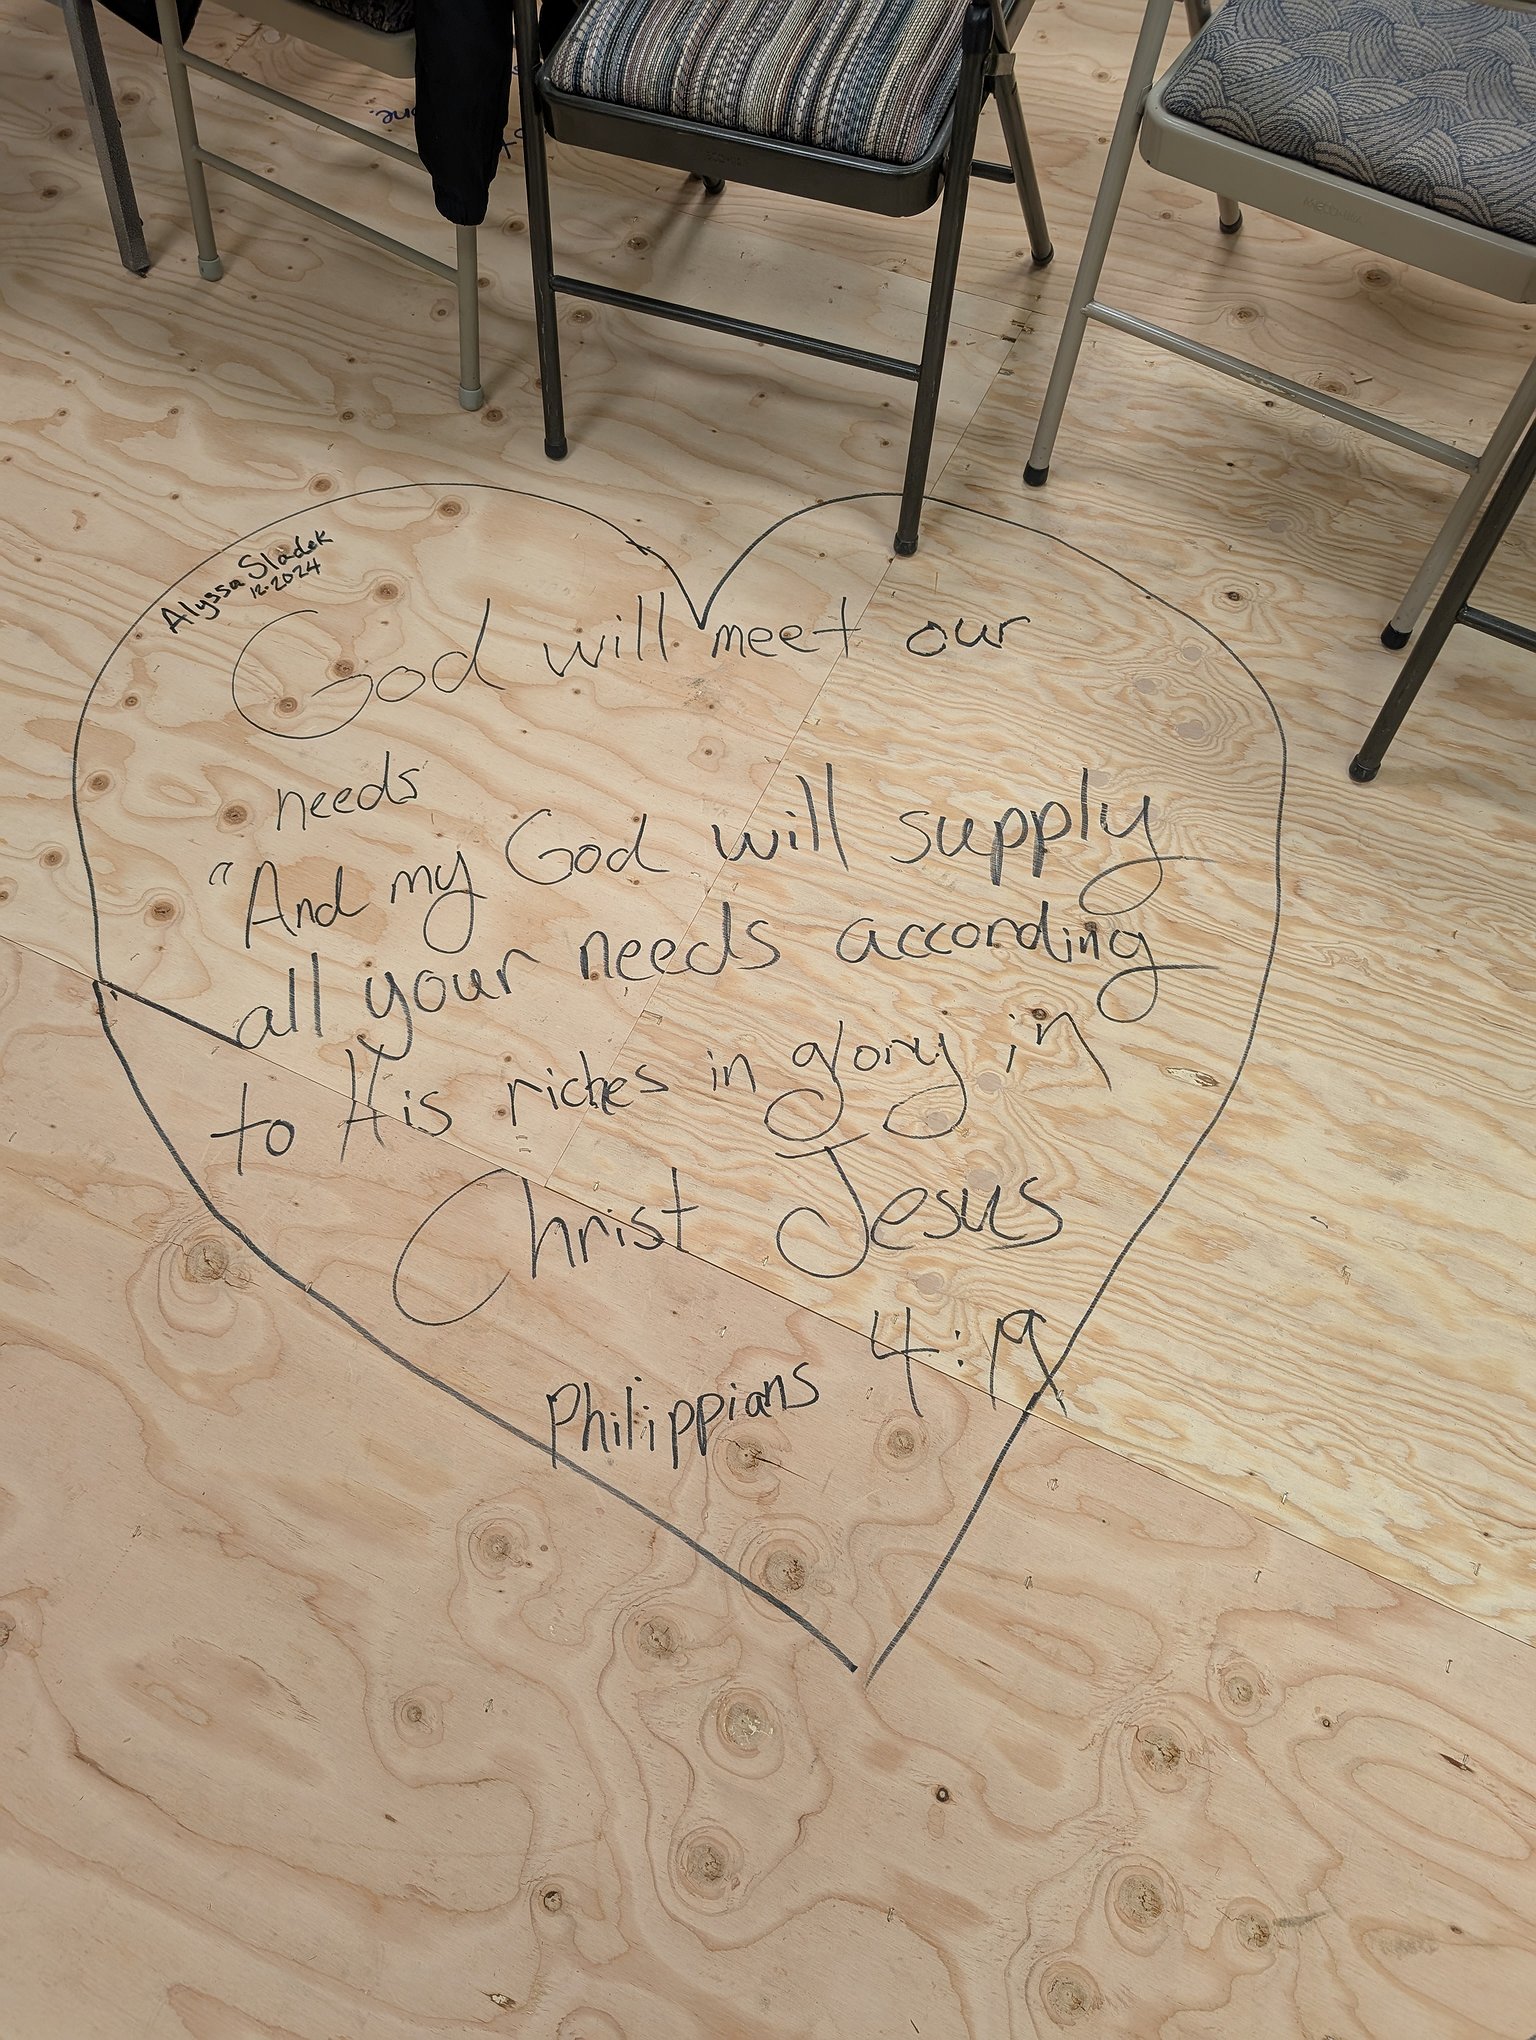 one.
Alyssa Sladek
12-2024
God will meet our
needs
"And my God will supply
all your needs according
to His riches in glory in
Christ Jesus
Philippians 4:19